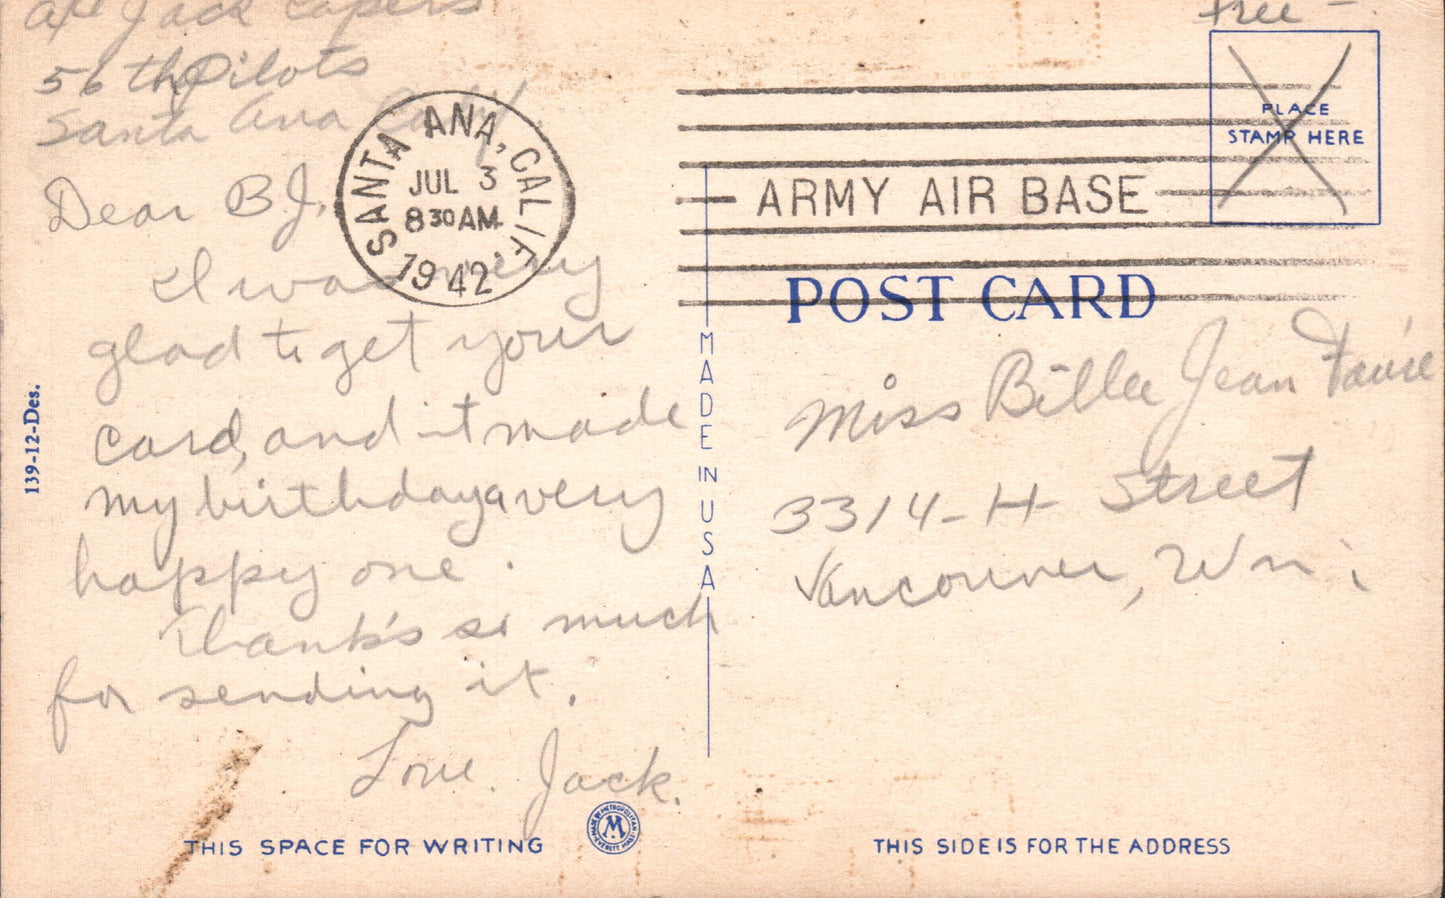 Jack Capers
56th Pilots
Santa Ana Calif.
SANTA ANA, CALIF.
JUL 3
8 30 AM
1942
ARMY AIR BASE
Free -
PLACE
STAMP HERE
Dear B.J.,
I was very
glad to get your
card, and it made
my birthday a very
happy one.
Thank's so much
for sending it.
Love. Jack.
139-12-Des.
THIS SPACE FOR WRITING
MADE BY METROPOLITAN
M
EVERETT MASS.
MADE IN USA
POST CARD
Miss Billee Jean
3314 - H Street
Vancouver, Wn.
THIS SIDE IS FOR THE ADDRESS